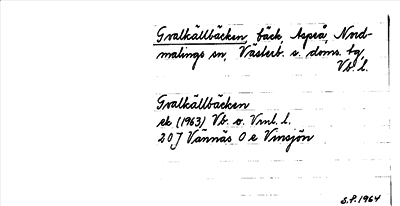 Gvalkällbäcken, bäck, Aspeå, Nord-
malings sn, Västerb. s. doms. tg,
Vb. l.
Gvalkällbäcken
ek (1963) Vb. o. Vml. l.
20 J Vännäs O e Vinsjön
S.P. 1964